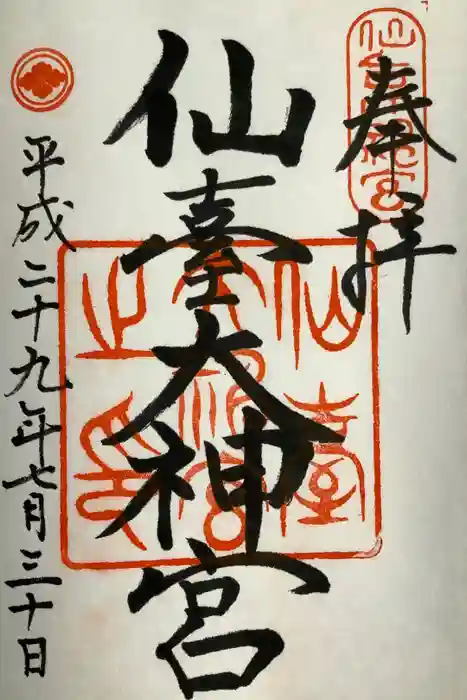 奉拝
仙臺大神宮
平成二十九年七月三十日
仙臺
大神宮
之印